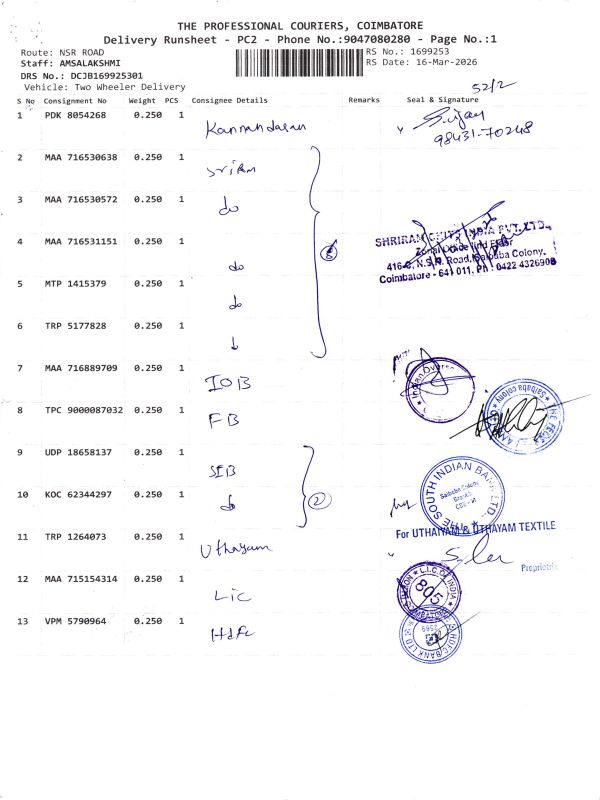 THE PROFESSIONAL COURIERS, COIMBATORE
Delivery Runsheet - PC2 - Phone No.:9047080280 - Page No.:1
Route: NSR ROAD
RS No.: 1699253
Staff: AMSALAKSHMI
RS Date: 16-Mar-2026
DRS No.: DCJB169925301
Vehicle: Two Wheeler Delivery
52/2
S No Consignment No Weight PCS Consignee Details Remarks Seal & Signature
1 PDK 8054268 0.250 1 Kannandasan
98431-70248
2 MAA 716530638 0.250 1 Sriram
3 MAA 716530572 0.250 1 do
4 MAA 716531151 0.250 1 do
SHRIRAM CHITS INDIA PVT. LTD.,
Zonal Office IInd Floor
416-C, N.S.R. Road, Saibaba Colony,
Coimbatore - 641 011. Ph : 0422 4326908
5 MTP 1415379 0.250 1 do
6 TRP 5177828 0.250 1
7 MAA 716889709 0.250 1 IOB
8 TPC 9000087032 0.250 1 FB
9 UDP 18658137 0.250 1 SIB
THE SOUTH INDIAN BANK LTD.
Saibaba Colony
Branch
10 KOC 62344297 0.250 1 do
2
For UTHAIYAM & UTHAYAM TEXTILE
11 TRP 1264073 0.250 1 Uthayam
12 MAA 715154314 0.250 1 Lic
L.I.C. OF INDIA
805
13 VPM 5790964 0.250 1 Hdfc
HDFC BANK LTD